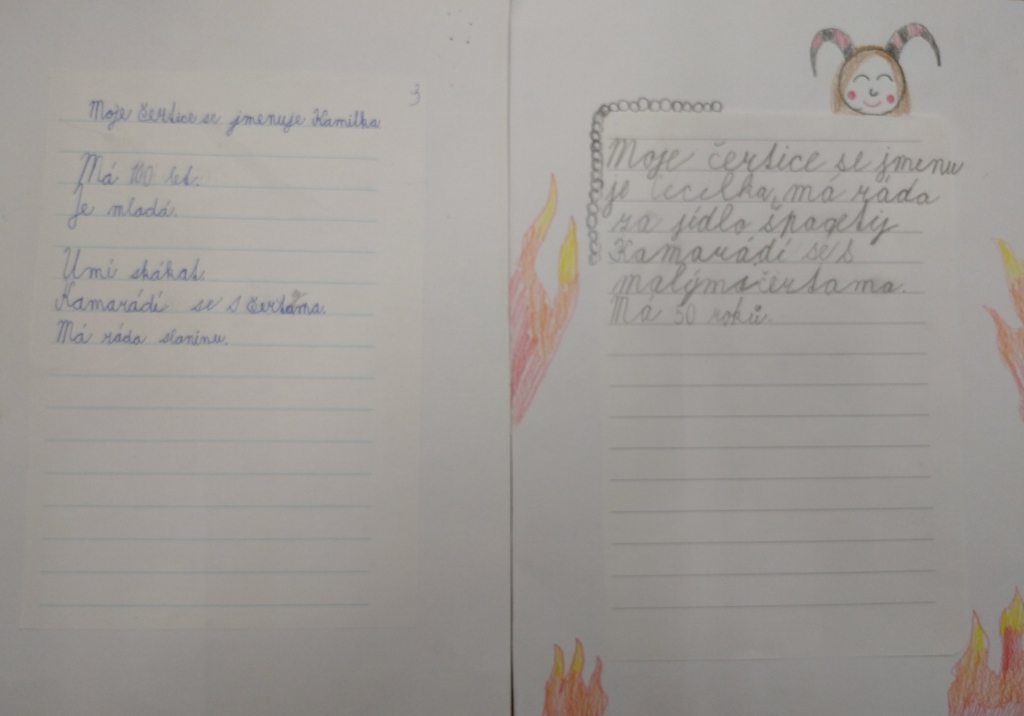 3
Moje čertice se jmenuje Kamilka
Má 180 let.
Je mladá.
Umí skákat.
Kamarádí se s čertama.
Má ráda slaninu.
Moje čertice se jmenu
je Cecilka, má ráda
za jídlo špagety
Kamarádí se s
malýma čertama.
Má 50 roků.